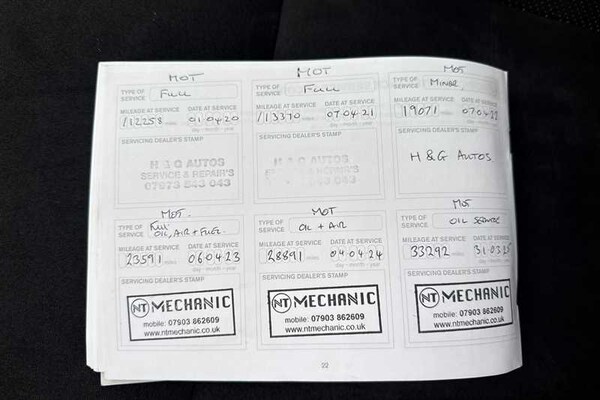 MOT
TYPE OF SERVICE FULL
MILEAGE AT SERVICE DATE AT SERVICE
112258 miles 01 04 20
day - month - year
SERVICING DEALER'S STAMP
H & G AUTOS
SERVICE & REPAIR'S
07973 543 043
MOT
TYPE OF SERVICE FULL
MILEAGE AT SERVICE DATE AT SERVICE
113370 miles 07 04 21
day - month - year
SERVICING DEALER'S STAMP
H & G AUTOS
SERVICE & REPAIR'S
MOT
TYPE OF SERVICE MINOR
MILEAGE AT SERVICE DATE AT SERVICE
19071 miles 07 04
day - month - year
SERVICING DEALER'S STAMP
H & G AUTOS
MOT
TYPE OF SERVICE Full OIL, AIR + FUEL
MILEAGE AT SERVICE DATE AT SERVICE
23591 miles 06 04 23
day - month - year
SERVICING DEALER'S STAMP
NT MECHANIC
mobile: 07903 862609
www.ntmechanic.co.uk
MOT
TYPE OF SERVICE OIL + AIR
MILEAGE AT SERVICE DATE AT SERVICE
28891 miles 04 04 24
day - month - year
SERVICING DEALER'S STAMP
NT MECHANIC
mobile: 07903 862609
www.ntmechanic.co.uk
MOT
TYPE OF SERVICE OIL SERVICE
MILEAGE AT SERVICE DATE AT SERVICE
33292 miles 31 03 25
day - month - year
SERVICING DEALER'S STAMP
NT MECHANIC
mobile: 07903 862609
www.ntmechanic.co.uk
22